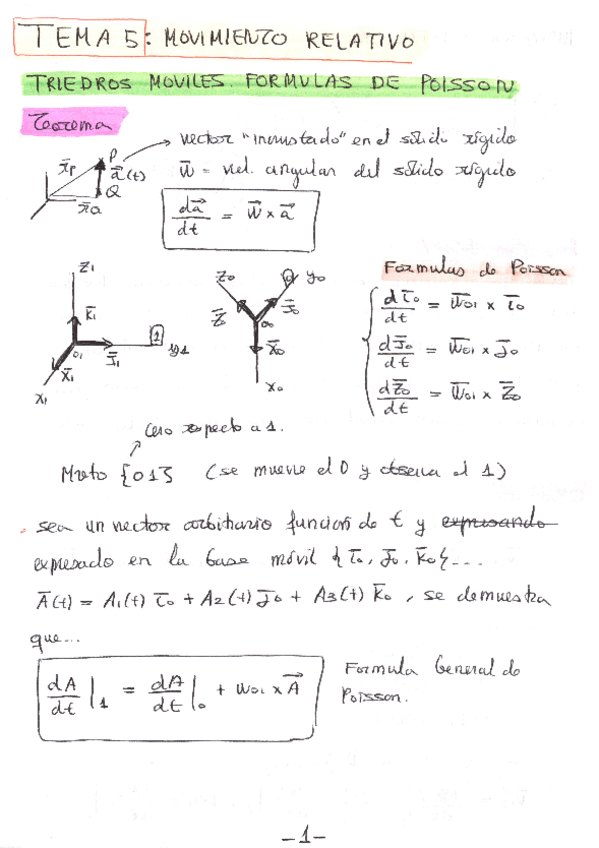 TEMA 5: MOVIMIENTO RELATIVO
TRIEDROS MOVILES. FORMULAS DE POISSON
Teorema
vector "incrustado" en el sólido rígido
P
r̄p
ā(t)
Q
r̄Q
w̄ = vel. angular del sólido rígido
da⃗/dt = w⃗ x a⃗
Formulas de Poisson
Z1
K̄1
O1
J̄1
1
y1
X1
Z0
0
y0
J̄0
X0
dī0/dt = w̄01 x ī0
dJ̄0/dt = w̄01 x J̄0
dZ̄0/dt = w̄01 x Z̄0
Cero respecto a 1.
Mvto {01} (se mueve el 0 y observa el 1)
sea un vector arbitrario función de t y expresando
expresado en la base móvil {ī0, J̄0, k̄0}...
Ā(t) = A1(t) ī0 + A2(t) J̄0 + A3(t) k̄0, se demuestra
que...
dA/dt |1 = dA/dt |0 + w01 x A⃗
Formula General de
Poisson.
-1-